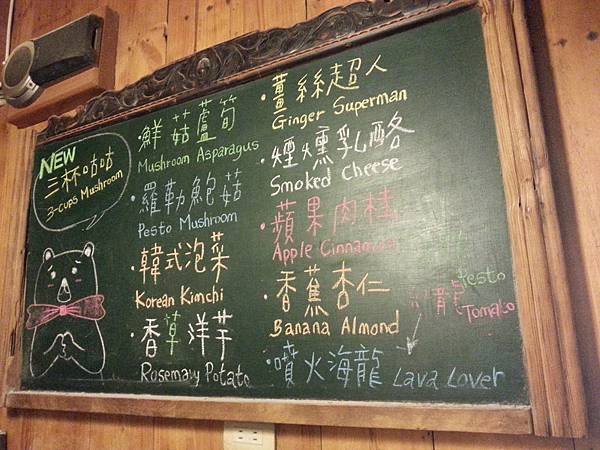 NEW
三杯咕咕
3-cups Mushroom
·鮮菇蘆筍
Mushroom Asparagus
·羅勒鮑菇
Pesto Mushroom
·韓式泡菜
Korean Kimchi
·香草洋芋
Rosemary Potato
·薑絲超人
Ginger Superman
·煙燻乳酪
Smoked Cheese
·蘋果肉桂
Apple Cinnamon
·香蕉杏仁
Banana Almond
·噴火海龍 Lava Lover
龍
Pesto
Tomato